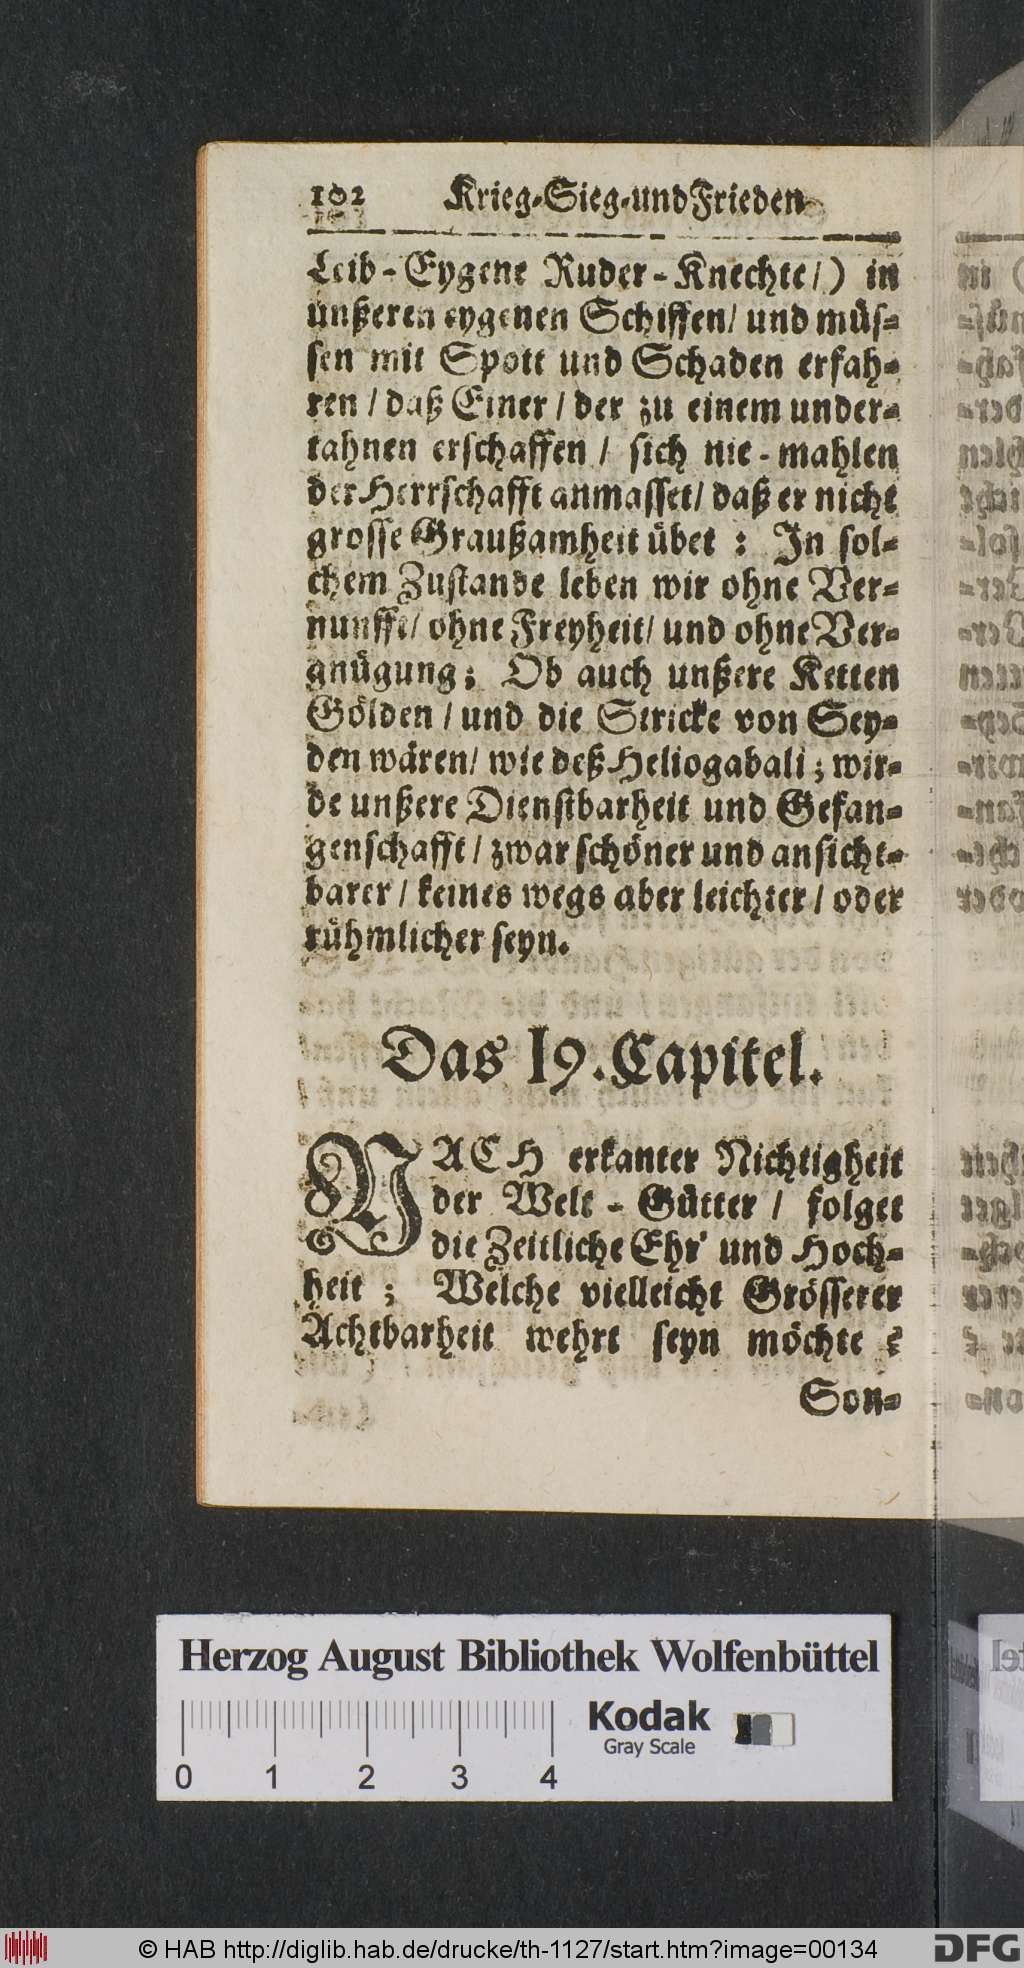 102 Krieg-Sieg-und Frieden
Leib-Eygene Ruder-Knechte/) in
unßeren eygenen Schiffen/ und müs-
sen mit Spott und Schaden erfah-
ren / daß Einer / der zu einem under-
tahnen erschaffen / sich nie-mahlen
der Herrschafft anmasset/ daß er nicht
grosse Graußamheit übet : In sol-
chem Zustande leben wir ohne Ver-
nunfft/ ohne Freyheit/ und ohne Ver-
gnügung; Ob auch unßere Ketten
Gölden / und die Stricke von Sey-
den wären/ wie deß Heliogabali; wir-
de unßere Dienstbarheit und Gefan-
genschafft / zwar schöner und ansicht-
barer / keines wegs aber leichter / oder
rühmlicher seyn.
Das 19. Capitel.
NACH erkanter Nichtigheit
der Welt-Gütter / folget
die Zeitliche Ehr' und Hoch-
heit ; Welche vielleicht Grösserer
Achtbarheit wehrt seyn möchte ?
Son-
Herzog August Bibliothek Wolfenbüttel
0 1 2 3 4
Kodak
Gray Scale
© HAB http://diglib.hab.de/drucke/th-1127/start.htm?image=00134
DFG